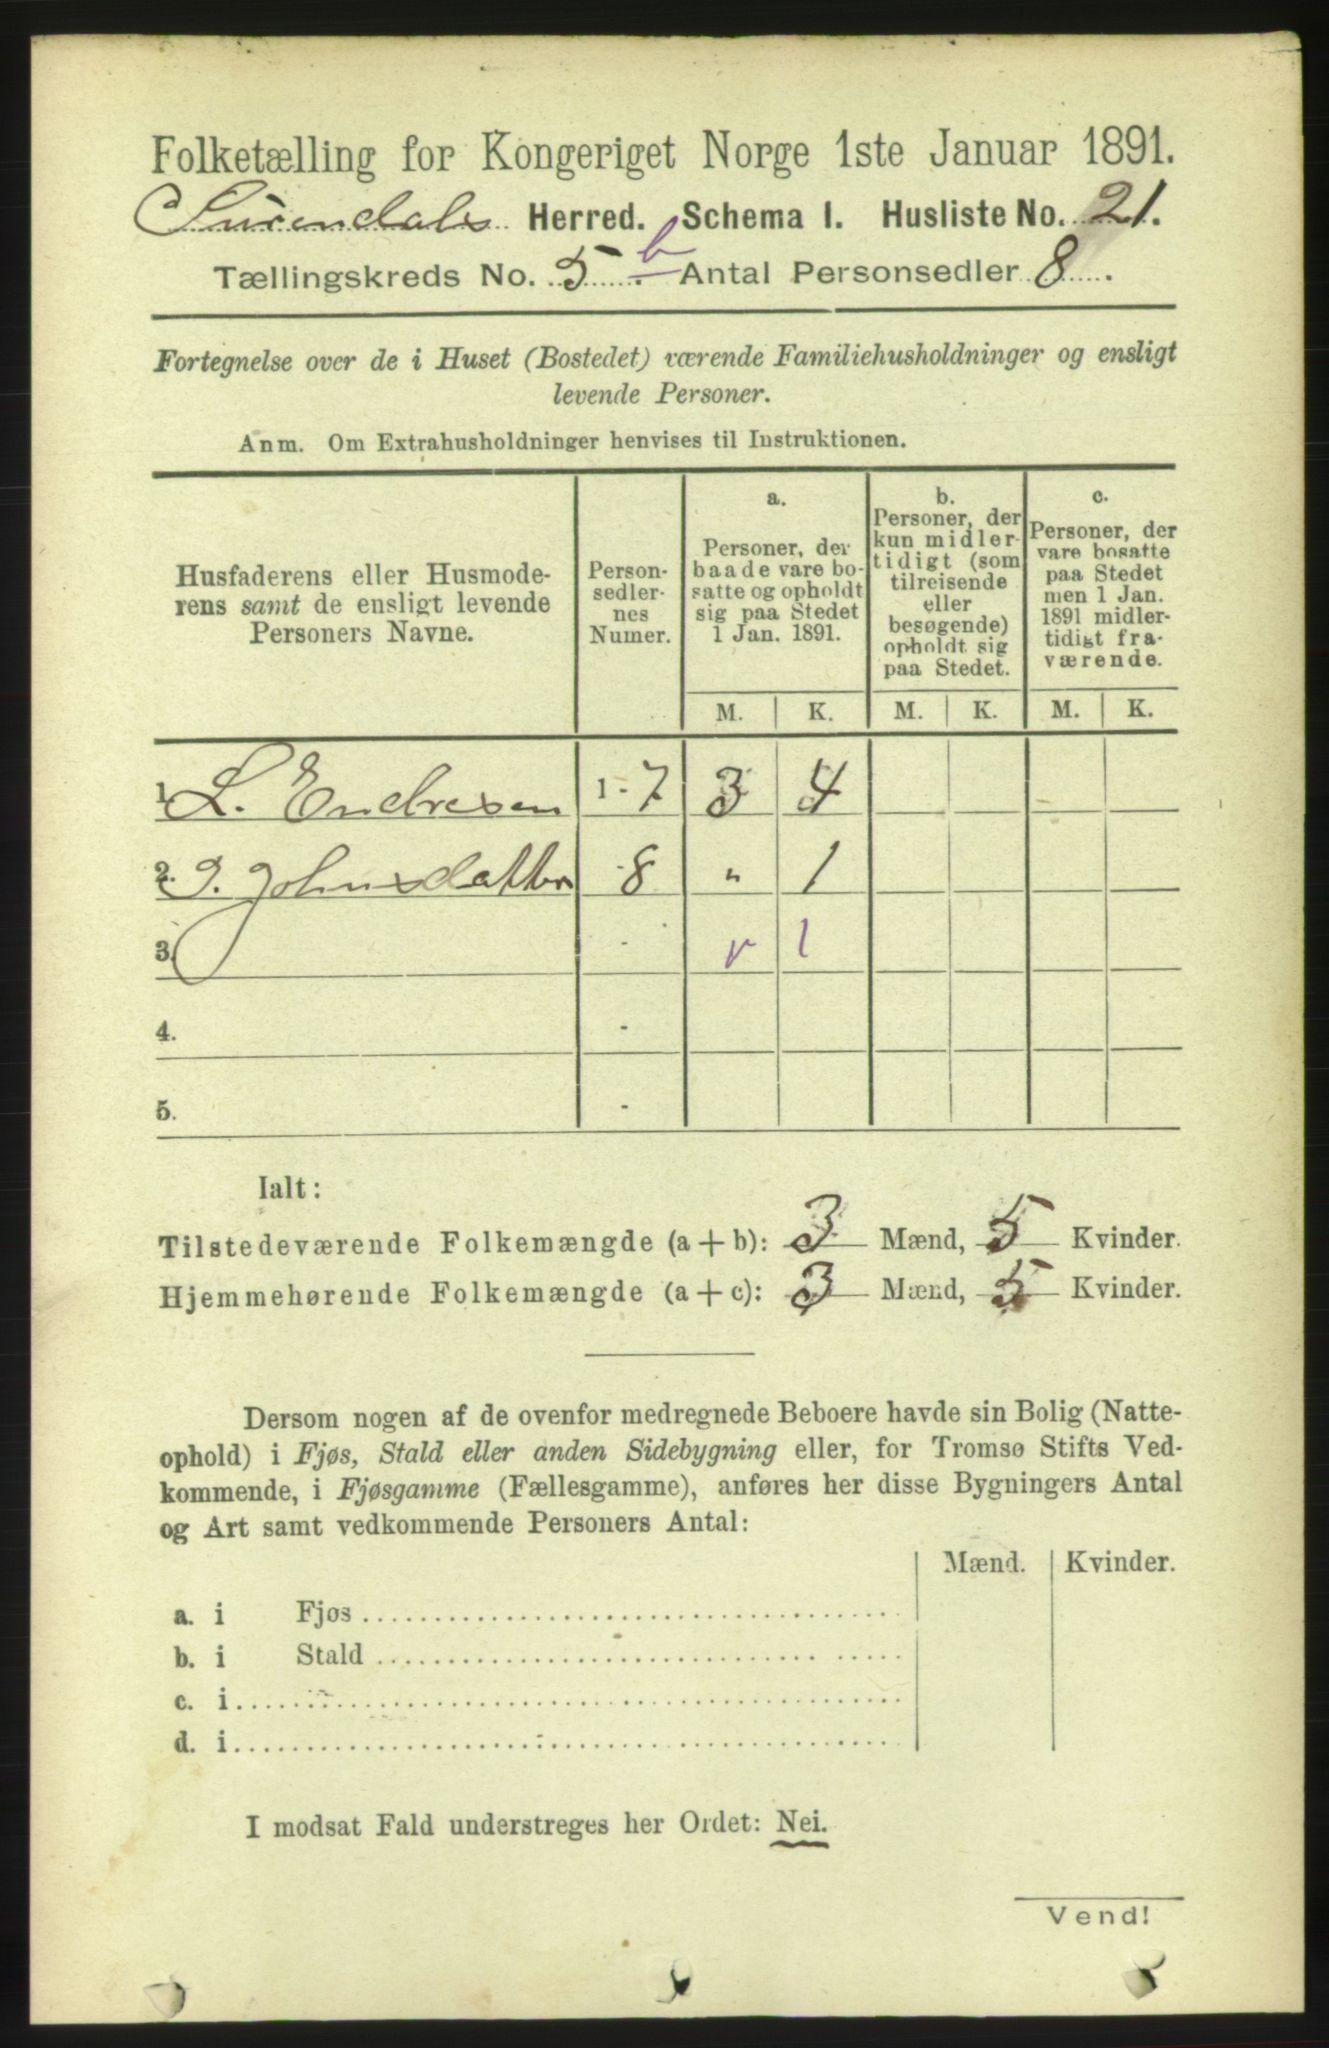 Folketælling for Kongeriget Norge 1ste Januar 1891.
Surendals Herred. Schema 1. Husliste No. 21.
Tællingskreds No. 5 b. Antal Personsedler 8.
Fortegnelse over de i Huset (Bostedet) værende Familiehusholdninger og ensligt
levende Personer.
Anm. Om Extrahusholdninger henvises til Instruktionen.
Husfaderens eller Husmode-
rens samt de ensligt levende
Personers Navne.
Person-
sedler-
nes
Numer.
a.
Personer, der
baade vare bo-
satte og opholdt
sig paa Stedet
1 Jan. 1891.
b.
Personer, der
kun midler-
tidigt (som
tilreisende
eller
besøgende)
opholdt sig
paa Stedet.
c.
Personer, der
vare bosatte
paa Stedet
men 1 Jan.
1891 midler-
tidigt fra-
værende.
M. K. M. K. M. K.
1. L. Endresen 1 - 7 3 4
2. J. Johnsdatter - 8 " 1
3. - v 1
4. -
5. -
Ialt:
Tilstedeværende Folkemængde (a + b): 3 Mænd, 5 Kvinder.
Hjemmehørende Folkemængde (a + c): 3 Mænd, 5 Kvinder.
Dersom nogen af de ovenfor medregnede Beboere havde sin Bolig (Natte-
ophold) i Fjøs, Stald eller anden Sidebygning eller, for Tromsø Stifts Ved-
kommende, i Fjøsgamme (Fællesgamme), anføres her disse Bygningers Antal
og Art samt vedkommende Personers Antal:
Mænd. Kvinder.
a. i Fjøs
b. i Stald
c. i
d. i
I modsat Fald understreges her Ordet: Nei.
Vend!